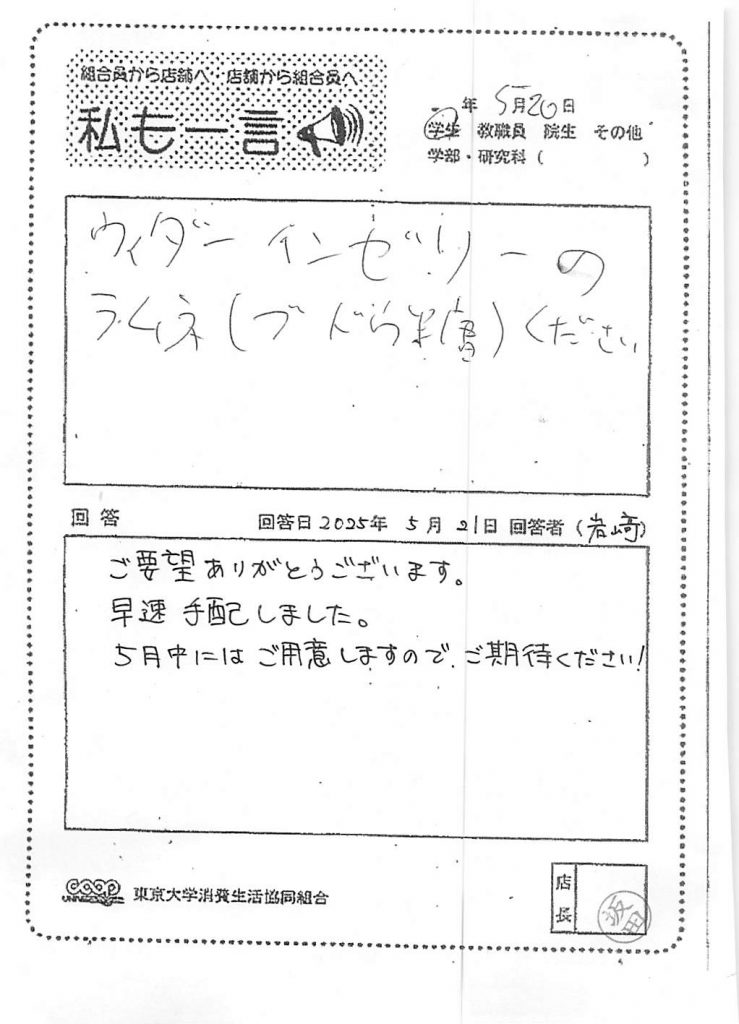 組合員から店舗へ・店舗から組合員へ
私も一言
年 5月20日
学生 教職員 院生 その他
学部・研究科( )
ウィダーインゼリーの
ラムネ(ブドウ糖)ください
回答 回答日2025年 5月21日 回答者(岩崎)
ご要望ありがとうございます。
早速手配しました。
5月中にはご用意しますので、ご期待ください!
COOP
東京大学消費生活協同組合
店長